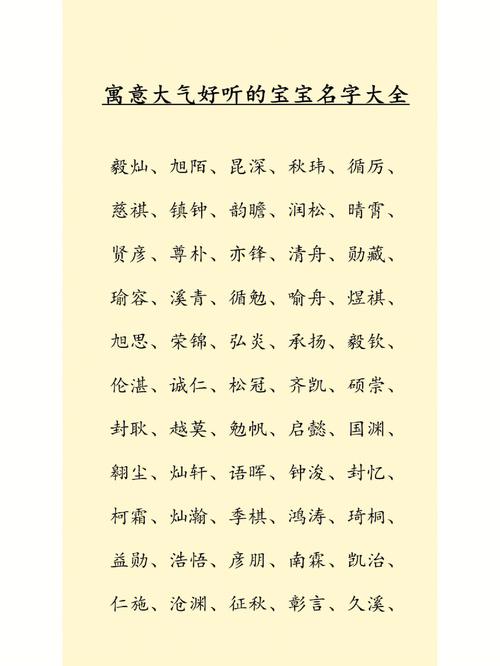 寓意大气好听的宝宝名字大全
毅灿、旭陌、昆深、秋玮、循厉、
慈祺、镇钟、韵瞻、润松、晴霄、
贤彦、尊朴、亦锋、清舟、勋藏、
瑜容、溪青、循勉、喻舟、煜祺、
旭思、荣锦、弘炎、承扬、毅钦、
伦湛、诚仁、松冠、齐凯、硕崇、
封耿、越莫、勉帆、启懿、国渊、
翱尘、灿轩、语晖、钟浚、封忆、
柯霜、灿瀚、季棋、鸿涛、琦桐、
益勋、浩悟、彦朋、南霖、凯治、
仁施、沧渊、征秋、彰言、久溪、